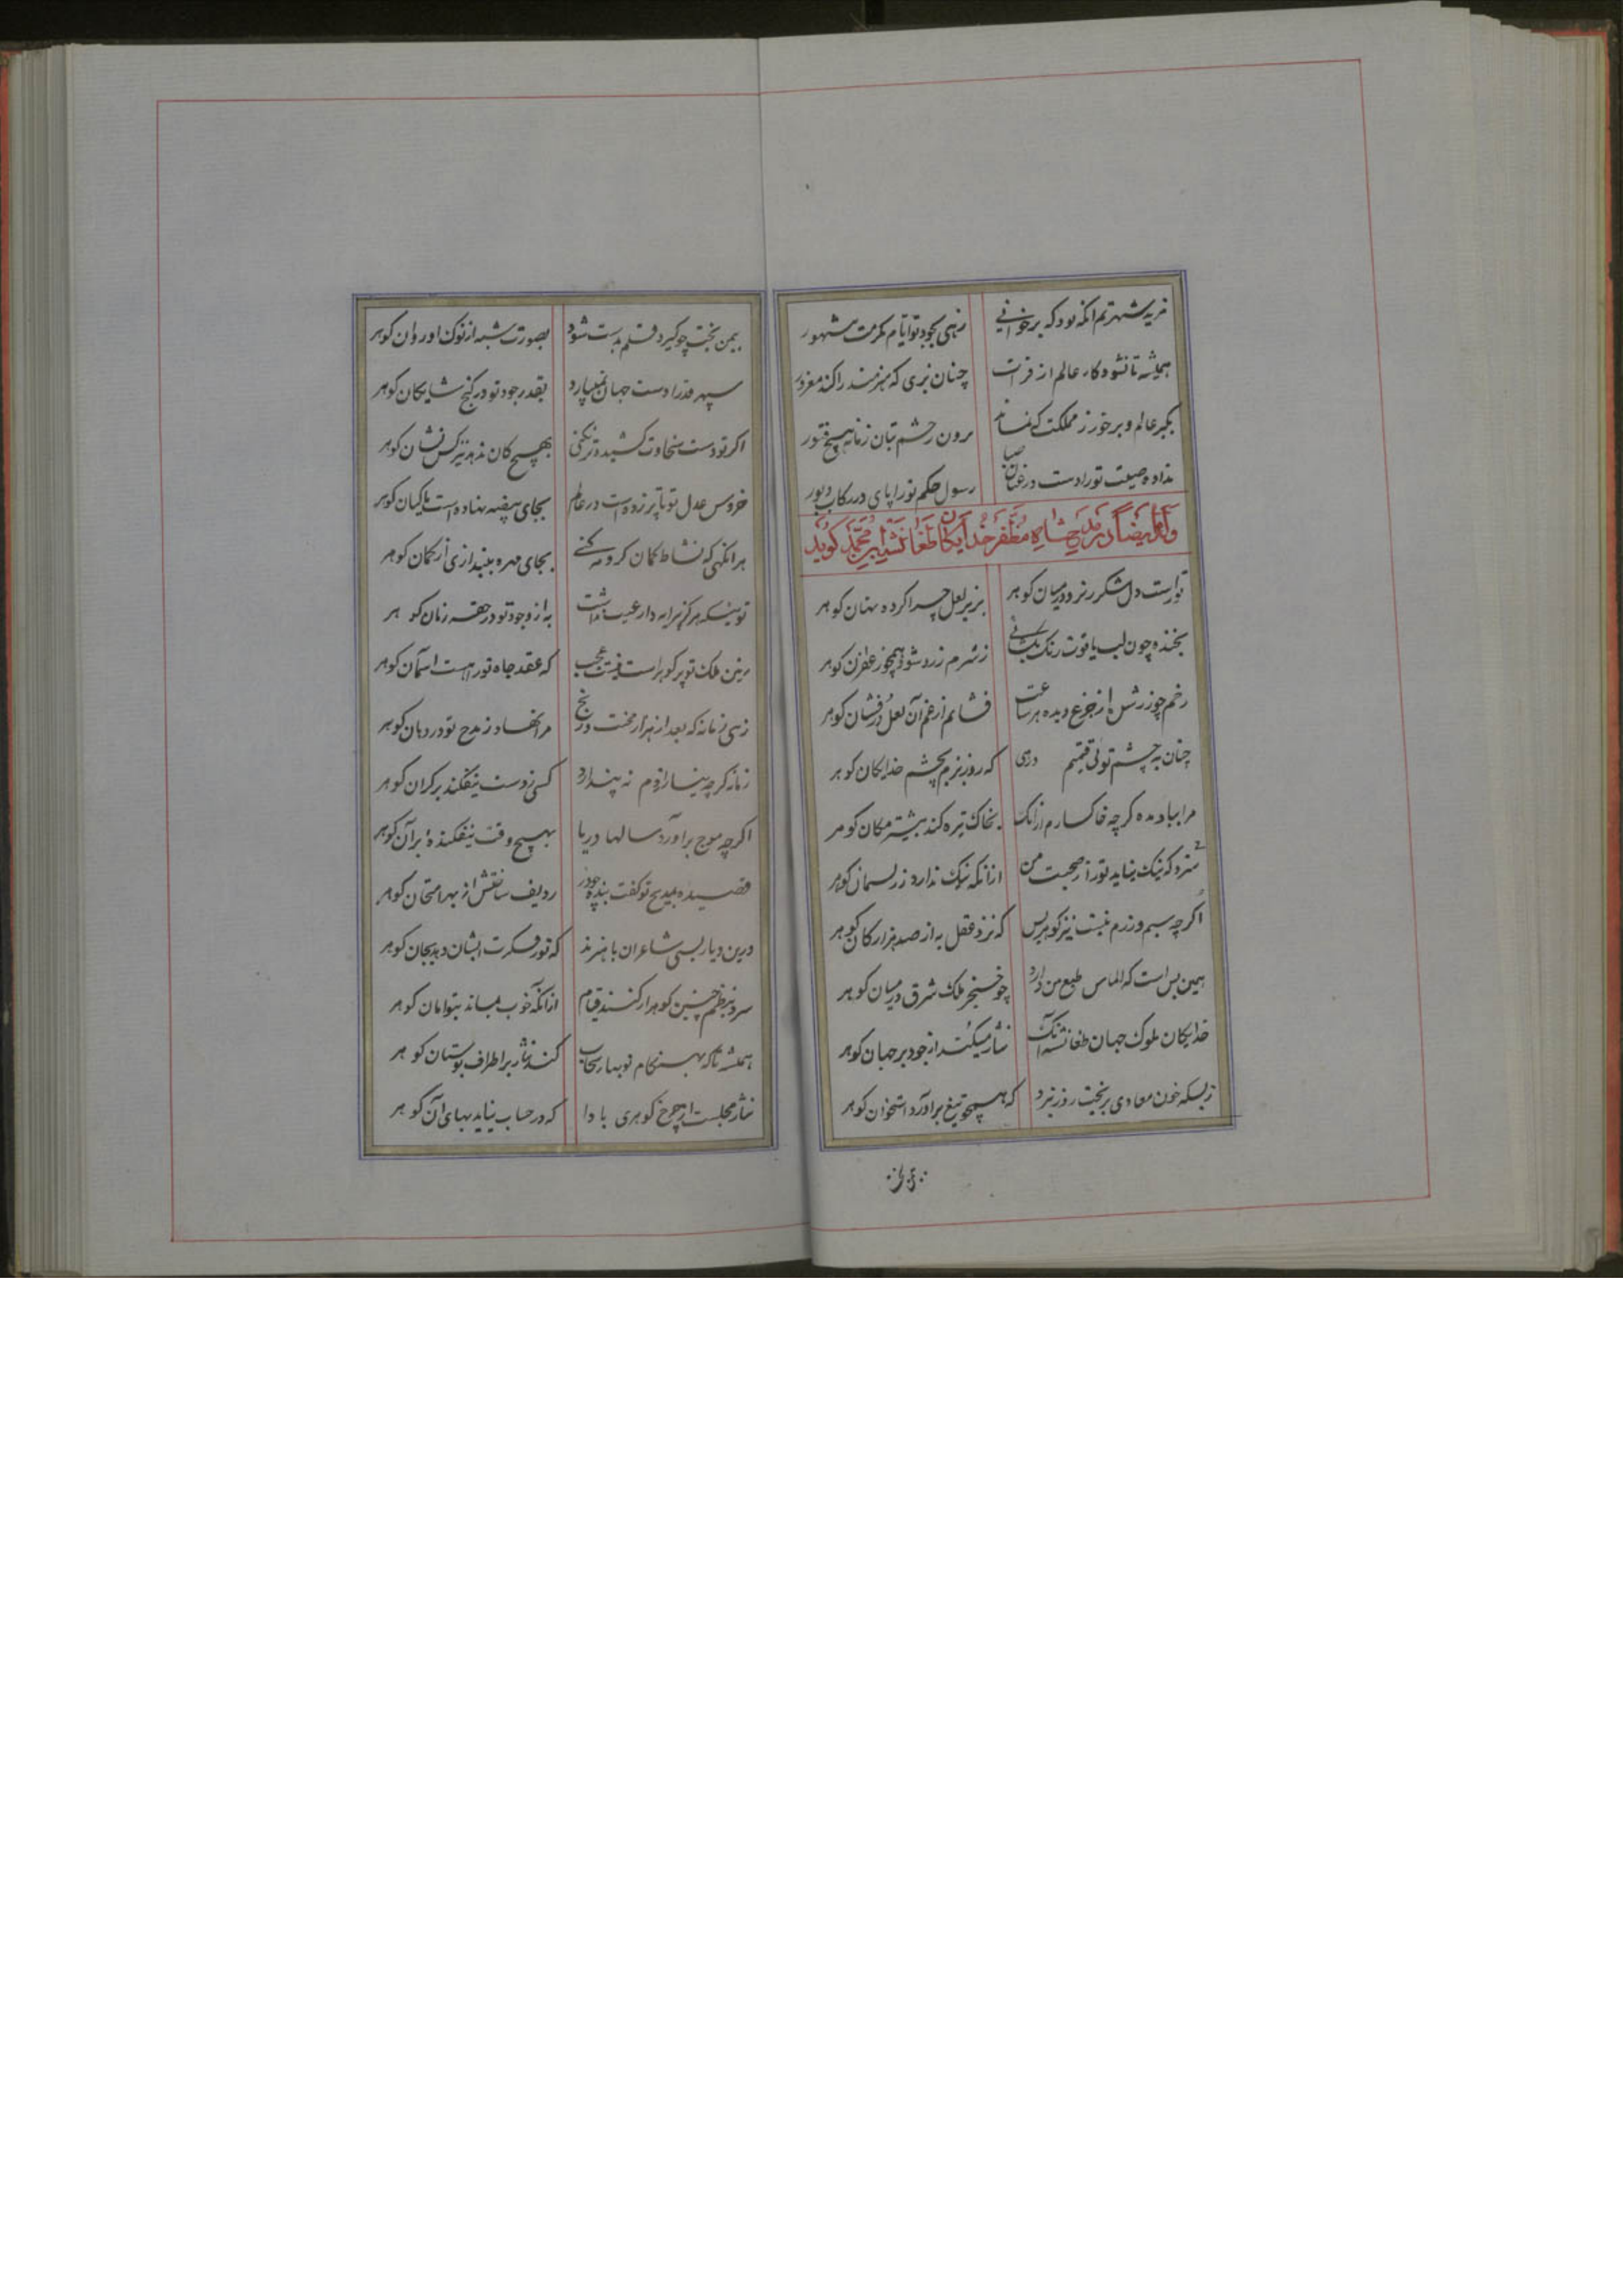 مزید شهرتم انکه بود که برخوانی زهی بجود تو ایام مکرمت مشهور
همیشه تا نشود کار عالم از قرات چنان بری که هنرمند را کند مغرور
بگیر عالم و برخور ز مملکت که نماند برون ز چشم بتان زمانه هیچ فتور
نداده صیت تو را دست در عنان صبا رسول حکم تو را پای در رکاب دبور
وله ایضا در مدح شاه مظفر خدایکان طغانشه ابن محمد کوید
تو راست دل شکر رز و در میان کوهر بزیر لعل چرا کرده نهان کوهر
بخنده چون لب یاقوت رنک بکشائی ز شرم زرد شود همچو زعفران کوهر
رخم چو زر شد از جزع دیده هر ساعت فشانم از غم آن لعل درفشان کوهر
چنان به چشم تو بی قیمتم دری که روز بزم بچشم خدایکان کوهر
مرا بباد مده کرچه خاکسارم ازانک بخاک تیره کند بیشتر مکان کوهر
سزد که نیک نیاید تو را ز صحبت من ازانکه نیک ندارد ز ریسمان کوهر
اکرچه سیم و زرم نیست نیز کوهر بس که نزد عقل به از صد هزار کان کوهر
همین بس است که الماس طبع من دارد چو خنجر ملک شرق در میان کوهر
خدایکان ملوک جهان طغانشه آنک نثار میکند از جود بر جهان کوهر
ز بسکه خون معادی بریخت روز نبرد که همچو تیغ براورد استخوان کوهر
بیمن بختت چو کیرد قلم بدست شود بصورت شبه از نوک او روان کوهر
سپهر قدرا دست جهان نمیپارد بقدر جود تو در کنج شایکان کوهر
اکر تو دست سخاوت کشیده تر نکنی بهیچ کان ندهد نیز کس نشان کوهر
خروس عدل تو تا پر زده است در عالم بجای بیضه نهاده است ماکیان کوهر
هر انکهی که نشاط کمان کروهه کنی بجای مهره بیندازی از کمان کوهر
توئیکه هرکز پیرایه دار عیب نداشت به از وجود تو در حقه زمان کوهر
زمین ملک تو پر کوهر است نیست عجب که عقد جاه تو را هست اسمان کوهر
زهی زمانه که بعد از هزار محنت و رنج مرا نهاد ز مدح تو در دهان کوهر
زمانه کرچه بینداردم نه پندارد کسی ز دست بیفکند بر کران کوهر
اکرچه موج براورد سالها دریا بهیچ وقت نیفکنده بر آن کوهر
قصیده بمدیح تو کفت بنده چو در ردیف ساختش از بهر امتحان کوهر
درین دیار بسی شاعران با هنرند که نور فکرت ایشان دهد بجان کوهر
سزد بنظم چنین کوهر ار کنند قیام ازانکه خوب مماند بتوامان کوهر
همیشه تا که بهنکام نوبهار سحاب کند نثار بر اطراف بوستان کوهر
نثار مجلست از چرخ کوهری بادا که در حساب نیاید بهای آن کوهر